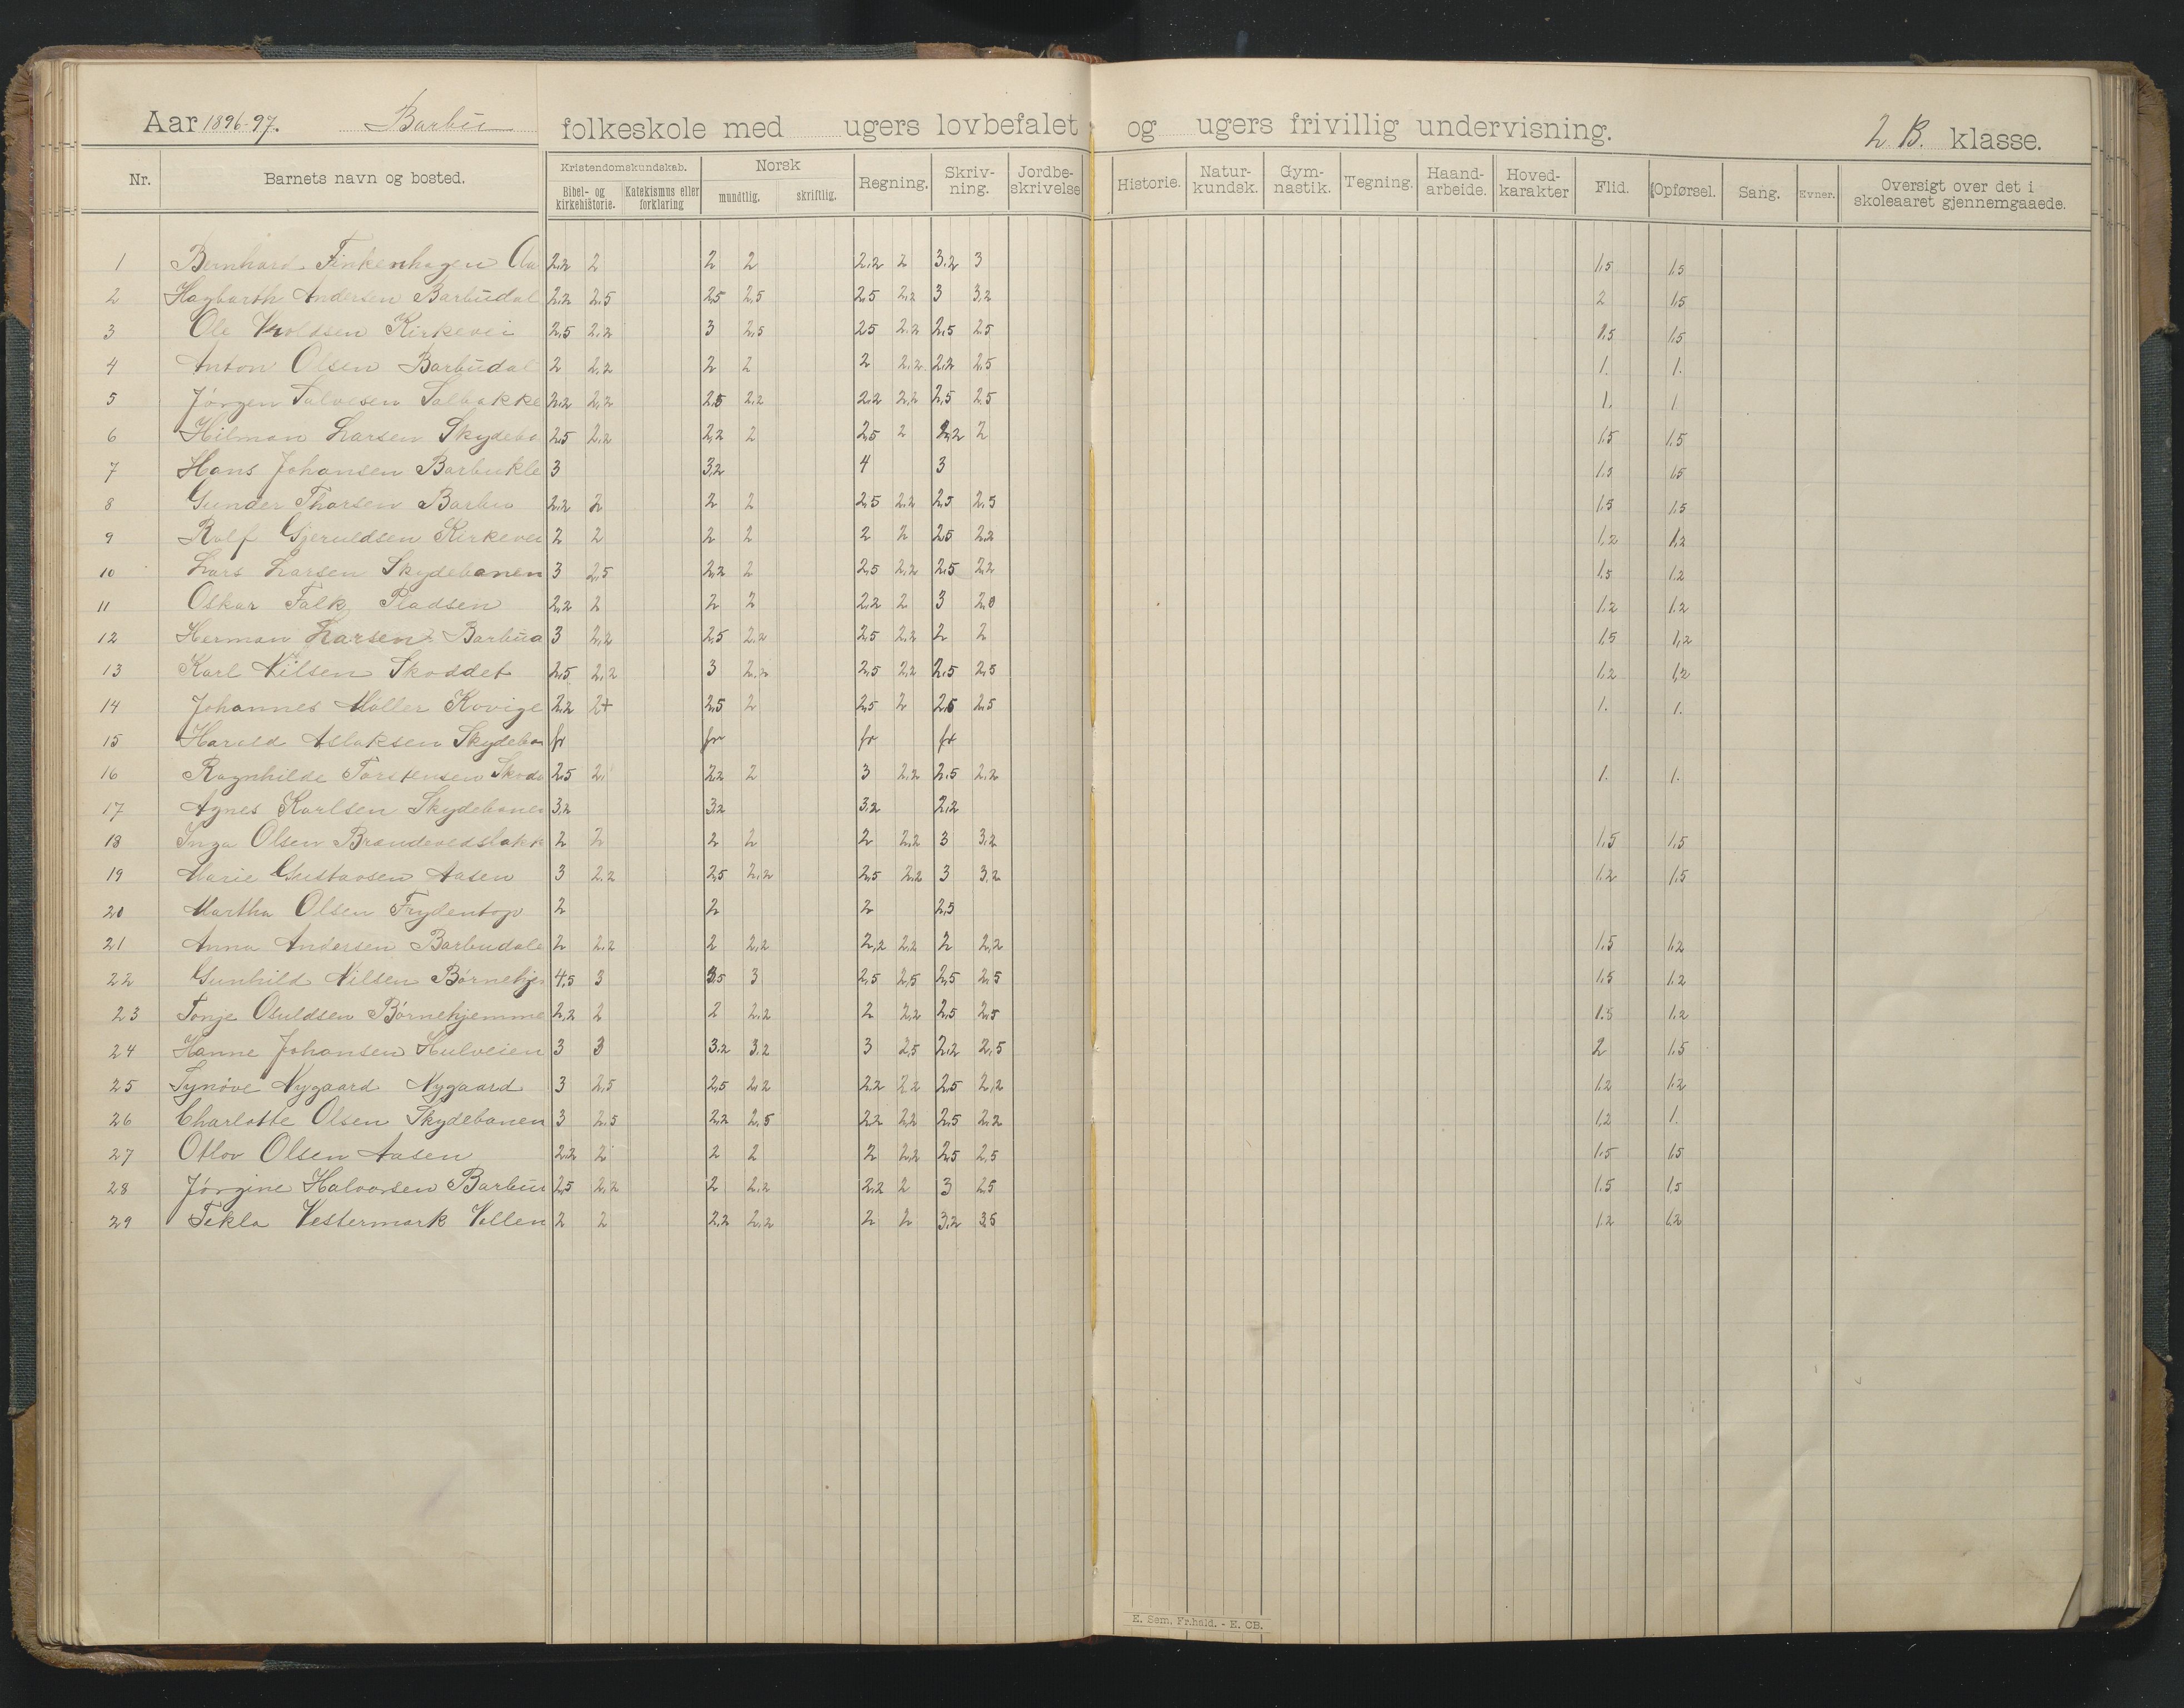 Aar 1896-97. Barbu folkeskole med ugers lovbefalet og ugers frivillig undervisning. 2 B. klasse.
Nr. Barnets navn og bosted. Kristendomskundskab. Norsk Regning. Skriv-ning. Jordbe-skrivelse Historie. Natur-kundsk. Gym-nastik. Tegning. Haand-arbeide. Hoved-karakter Flid. Opførsel. Sang. Evner. Oversigt over det i skoleaaret gjennemgaaede.
Bibel- og kirkehistorie. Katekismus eller forklaring mundtlig. skriftlig.
1 Bernhard Finkenhagen 2.2 2 2 2 2.2 2 3.2 3 1.5 1.5
2 Hagbarth Andersen Barbudal 2.2 2.5 2.5 2.5 2.5 2.2 3 3.2 2 1.5
3 Ole Kirkevei 2.5 2.2 3 2.5 2.5 2.2 2.5 2.5 1.5 1.5
4 Anton Olsen Barbudal 2 2.2 2 2 2 2.2 2.2 2.5 1. 1.
5 Jórgen Salvesen Solbakke 2.2 2.2 2.5 2.2 2.2 2.2 2.5 2.5 1. 1
6 Hilman Larsen Skydeba 2.5 2.2 2.2 2 2.5 2 2.2 2 1.5 1.5
7 Hans Johansen Barbukle 3 3.2 4 3 1.5 1.5
8 Gunder Thorsen Barbu 2.2 2 2 2 2.5 2.2 2.5 2.5 1.5 1.5
9 Rolf Gjeruldsen Kirkevei 2 2 2 2 2 2 2.5 2.2 1.2 1.2
10 Lars Larsen Skydebanen 3 2.5 2.2 2 2.5 2.2 2.5 2.2 1.5 1.2
11 Oskar Falk Pladsen 2.2 2 2 2 2.2 2 3 2.0 1.2 1.2
12 Herman Larsen Barbua 3 2.2 2.5 2.2 2.5 2.2 2 2 1.5 1.2
13 Karl Nilsen Skoddet 2.5 2.2 3 2.2 2.5 2.2 2.5 2.5 1.2 1.2
14 Johannes Móller Kovige 2.2 2+ 2.5 2 2.5 2 2.5 2.5 1. 1.
15 Harald Aslaksen Skydeban fr fr fr fr
16 Ragnhilde Torstensen Skodd 2.5 2. 2.2 2 3 2.2 2.5 2.2 1. 1.
17 Agnes Karlsen Skydebanen 3.2 3.2 3.2 2.2
18 Inga Olsen Brændevedsbakk 2 2 2 2 2 2.2 3 3.2 1.5 1.5
19 Marie Gustavsen Aasen 3 2.2 2.5 2.2 2.5 2.2 3 3.2 1.2 1.5
20 Martha Olsen Frydentop 2 2 2 2.5
21 Anna Andersen Barbudale 2 2.2 2 2.2 2.2 2.2 2 2.2 1.5 1.2
22 Gunhild Nilsen Bórnehje 4.5 3 3.5 3 2.5 2.5 2.5 2.5 1.5 1.2
23 Tonje Osuldsen Bórnehjemme 2.2 2 2 2.2 2 2.2 2.5 2.5 1.5 1.2
24 Hanne Johansen Hulveien 3 3 3.2 3.2 3 2.5 2.2 2.5 2 1.5
25 Synóve Nygaard Nygaard 3 2.5 2.5 2.2 2.2 2.2 2.5 2.2 1.2 1.2
26 Charlotte Olsen Skydebanen 3 2.5 2.2 2.5 2.2 2.2 2.5 2.2 1.2 1.
27 Olsen Aasen 2.2 2 2 2 2 2.2 2.5 2.5 1.5 1.5
28 Jórgine Halvorsen Barbu 2.5 2.2 2 2.2 2.2 2 3 2.5 1.5 1.5
29 Tekla Vestermark Vollen 2 2 2.2 2.2 2 2 3.2 3.5 1.2 1.2
E. Sem. Fr.hald. - E. CB.